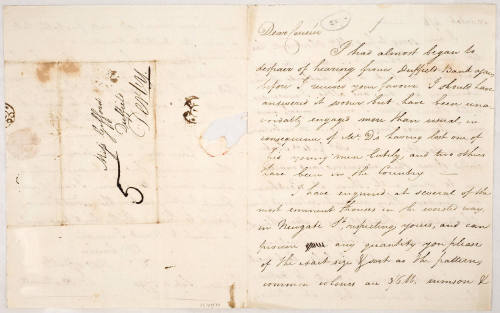 Dear Cousin
I had almost began to
despair of hearing from Duffield Bank again
before I receiv'd your favour I should have
answered it sooner but have been una=
=voidably engaged more than usual, in
consequence of Mr. Ds having lost one of
his young men lately, and two others
have been in the Country —
I have enquired at several of the
most eminent houses in the worsted way
in Newgate St. respecting yours, and can
procure any quantity you please
of the exact size & sort as the pattern,
common colours are 3/6 lb. crimson &
Miss
Duffield
Derby
5